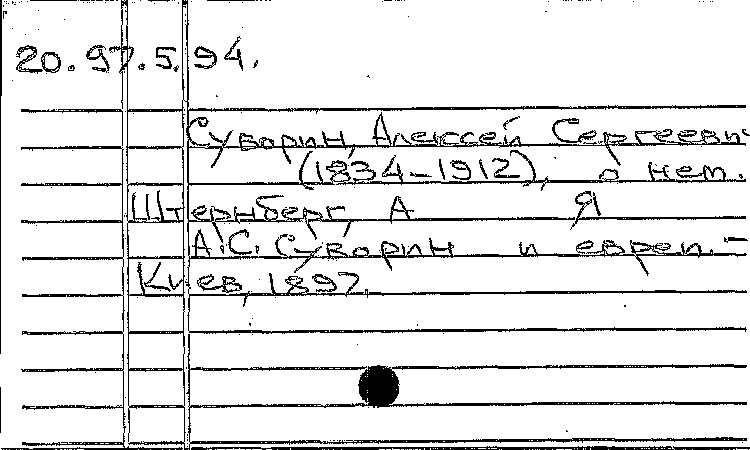 20.97.5.94.
Суворин, Алексей Сергеевич
(1834-1912), о нем.
Штернберг, А Я
А.С. Суворин и евреи. -
Киев, 1897.